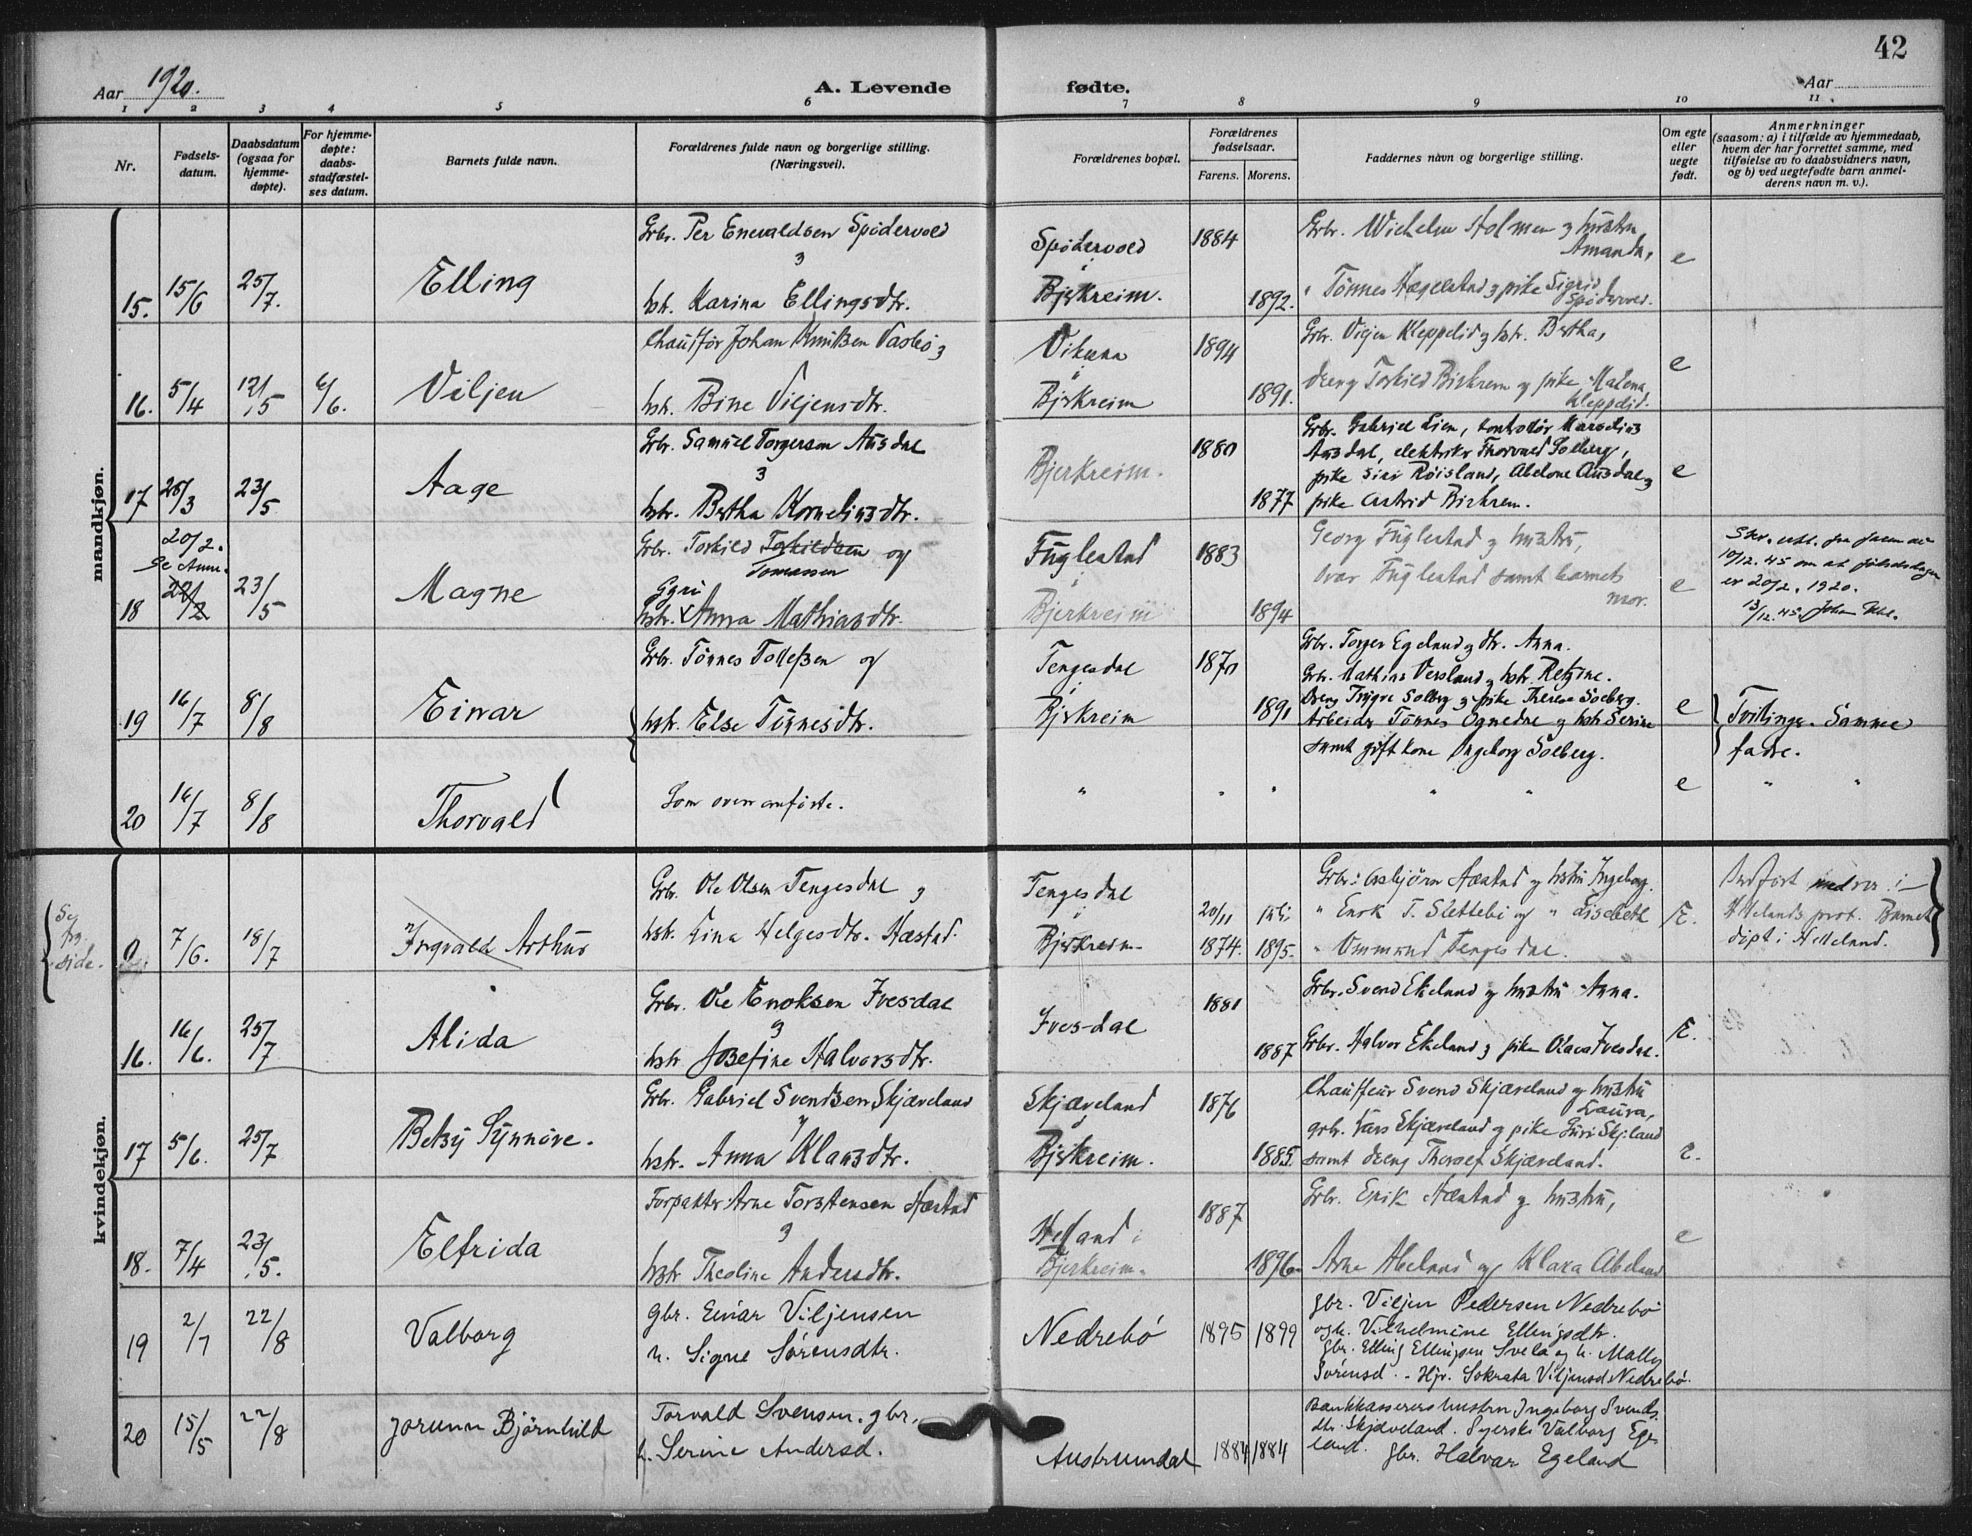 42
Aar 1920.
A. Levende fødte.
Aar
1 2 3 4 5 6 7 8 9 10 11
Nr.
Fødsels-
datum.
Daabsdatum
(ogsaa for
hjemme-
døpte).
For hjemme-
døpte:
daabs-
stadfæstel-
ses datum.
Barnets fulde navn.
Forældrenes fulde navn og borgerlige stilling.
(Næringsvei).
Forældrenes bopæl.
Forældrenes
fødselsaar.
Farens. Morens.
Faddernes navn og borgerlige stilling.
Om egte
eller
uegte
født.
Anmerkninger
(saasom: a) i tilfælde av hjemmedaab,
hvem der har forrettet samme, med
tilføielse av to daabsvidners navn,
og b) ved uegtefødte barn anmel-
derens navn m. v.).
mandkjøn.
15. 15/6 25/7. Elling
Grb. Per Enevaldsen Spødervold
og
hstr. Karina Ellingsdtr.
Spødervold
i
Bjerkreim.
1884 1892.
Grbr. Wilhelm Holmen og hustru
Amanda,
" Tønnes Hægestad og pike Sigrid
Spødervold.
e
16. 5/4 12/5 6/6. Viljen
Chauffør Johan Knutsen Vasbø og
hstr. Bine Viljensdtr.
Vikesa
i
Bjerkreim
1894 1891.
Grb. Viljen Kleppelid og hstr. Bertha,
dreng Torkild Birkrem og pike Malena
Kleppelid.
e
17 28/3 23/5 Aage
Grb. Samuel Torgersen Ausdal
og
hstr. Bertha Kornelius dtr.
Bjerkreim.
1880 1877
Grbr. Gabriel Lien, kontorør Marselius
Ausdal, elektriker Thorvald Solberg,
pike Siri Røisland, Abelone Ausdal og
pike Astrid Birkrem.
e
20/2.
Se Anm.
18 22/2 23/5 Magne
Grbr. Torkild Torkildsen og
Tomassen
Gyri
hstr. Anna Mathiasdtr.
Fuglestad
i
Bjerkreim
1883 1894
Georg Fuglestad og hustru,
Ivar Fuglestad samt barnets
mor.
e
10/12.45 om at fødselsdagen
er 20/2. 1920.
13/12.45.
19 16/7 8/8 Einar
Grb. Tønnes Tollefsen og
hstr. Else Tønnesdtr.
Tengesdal
i
Bjerkreim
1870 1891
Grb. Torger Egeland og dtr. Anna.
Grb. Mathias Versland og hstr. Retzine.
Dreng Trygve Solberg og pike Therese Solberg.
Arbeider Tønnes Ognedal og hstr. Serine
samt gift kone Ingeborg Solberg.
e
Tvillinger. Samme
fadre.
20 16/7 8/8 Thorvald
Som ovenanførte.
" " " " " e " "
kvindekjøn.
Se
fg.
side.
0 7/6. 18/7 Ingvald Arthur
Grb. Ole Olsen Tengesdal og
hstr. Lina Helgesdtr. Hæstad.
Tengesdal
i
Bjerkreim
20/11 1874. 1895.
Grbr. Asbjørn Hæstad og hustru Ingeborg.
" Enok T. Slettebø og " Lisebeth
" Ommund Tengesdal.
Æ.
Indført nedre i
Hellands prot. Barnet
døpt i Helleland.
16. 16/6. 25/7 Alida
Grbr. Ole Enoksen Ivesdal
og
hstr Josefine Halvorsdtr.
Ivesdal
1881 1887
Grbr. Svend Ekeland og hustru Anna.
Grbr. Halvor Ekeland og pike Olava Ivesdal.
Æ.
17 5/6. 25/7 Betsy Synnøve.
Grb. Gabriel Svendsen Skjæveland
og
hstr. Anna Klausdtr.
Skjæveland
i
Bjerkreim.
1876 1885.
Chauffeur Svend Skjæveland og hustru
Laura,
grbr. Lars Skjæveland og pike Guri Skj.land
samt dreng Thoralf Skjæveland.
e.
18. 7/4 23/5. Elfrida
Forpakter Arne Torstensen Hæstad
og
hstr Theoline Andersdtr.
Helland i
Bjerkreim.
1887 1896.
Grbr. Enik Hæstad og hustru,
Arne Abeland og Klara Abeland
e
19 2/7 22/8 Valborg
gbr. Einar Viljensen
h. Signe Sørensdtr.
Nedrebø
1895 1899
gbr. Viljen Pedersen Nedrebø
og h. Vilhelmine Ellingsdtr.
gbr. Elling Ellingsen Svela og h. Mally
Sørensd. - Hjr. Sokrata Viljensd Nedrebø.
20 15/5 22/8 Jorunn Bjørnhild
Torvald Svensen. gbr.
h. Serine Andersd.
Austrumdal
1884 1884
Bankkasserers hustru Ingeborg Svends-
dtr. Skjæveland. Syerske Valborg Ege-
land. gbr. Halvar Egeland